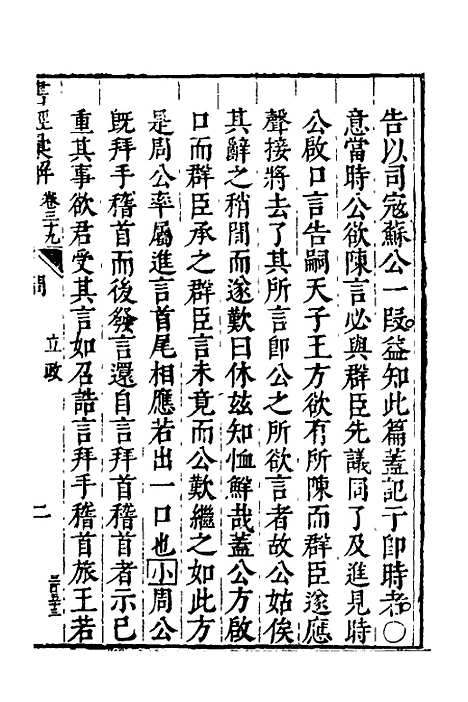 告以司寇蘇公一段益知此篇蓋記于即時者○
意當時公欲陳言必與群臣先議同了及進見時
公啟口言告嗣天子王方欲有所陳而群臣遂應
聲接將去了其所言即公之所欲言者故公姑俟
其辭之稍間而遂歎曰休兹知恤鮮哉蓋公方啟
口而群臣承之群臣言未竟而公歎繼之如此方
是周公率屬進言首尾相應若出一口也小周公
既拜手稽首而後發言還自言拜首稽首者示已
重其事欲君受其言如召誥言拜手稽首旅王若
書經 解 卷三十九 周 立政 二